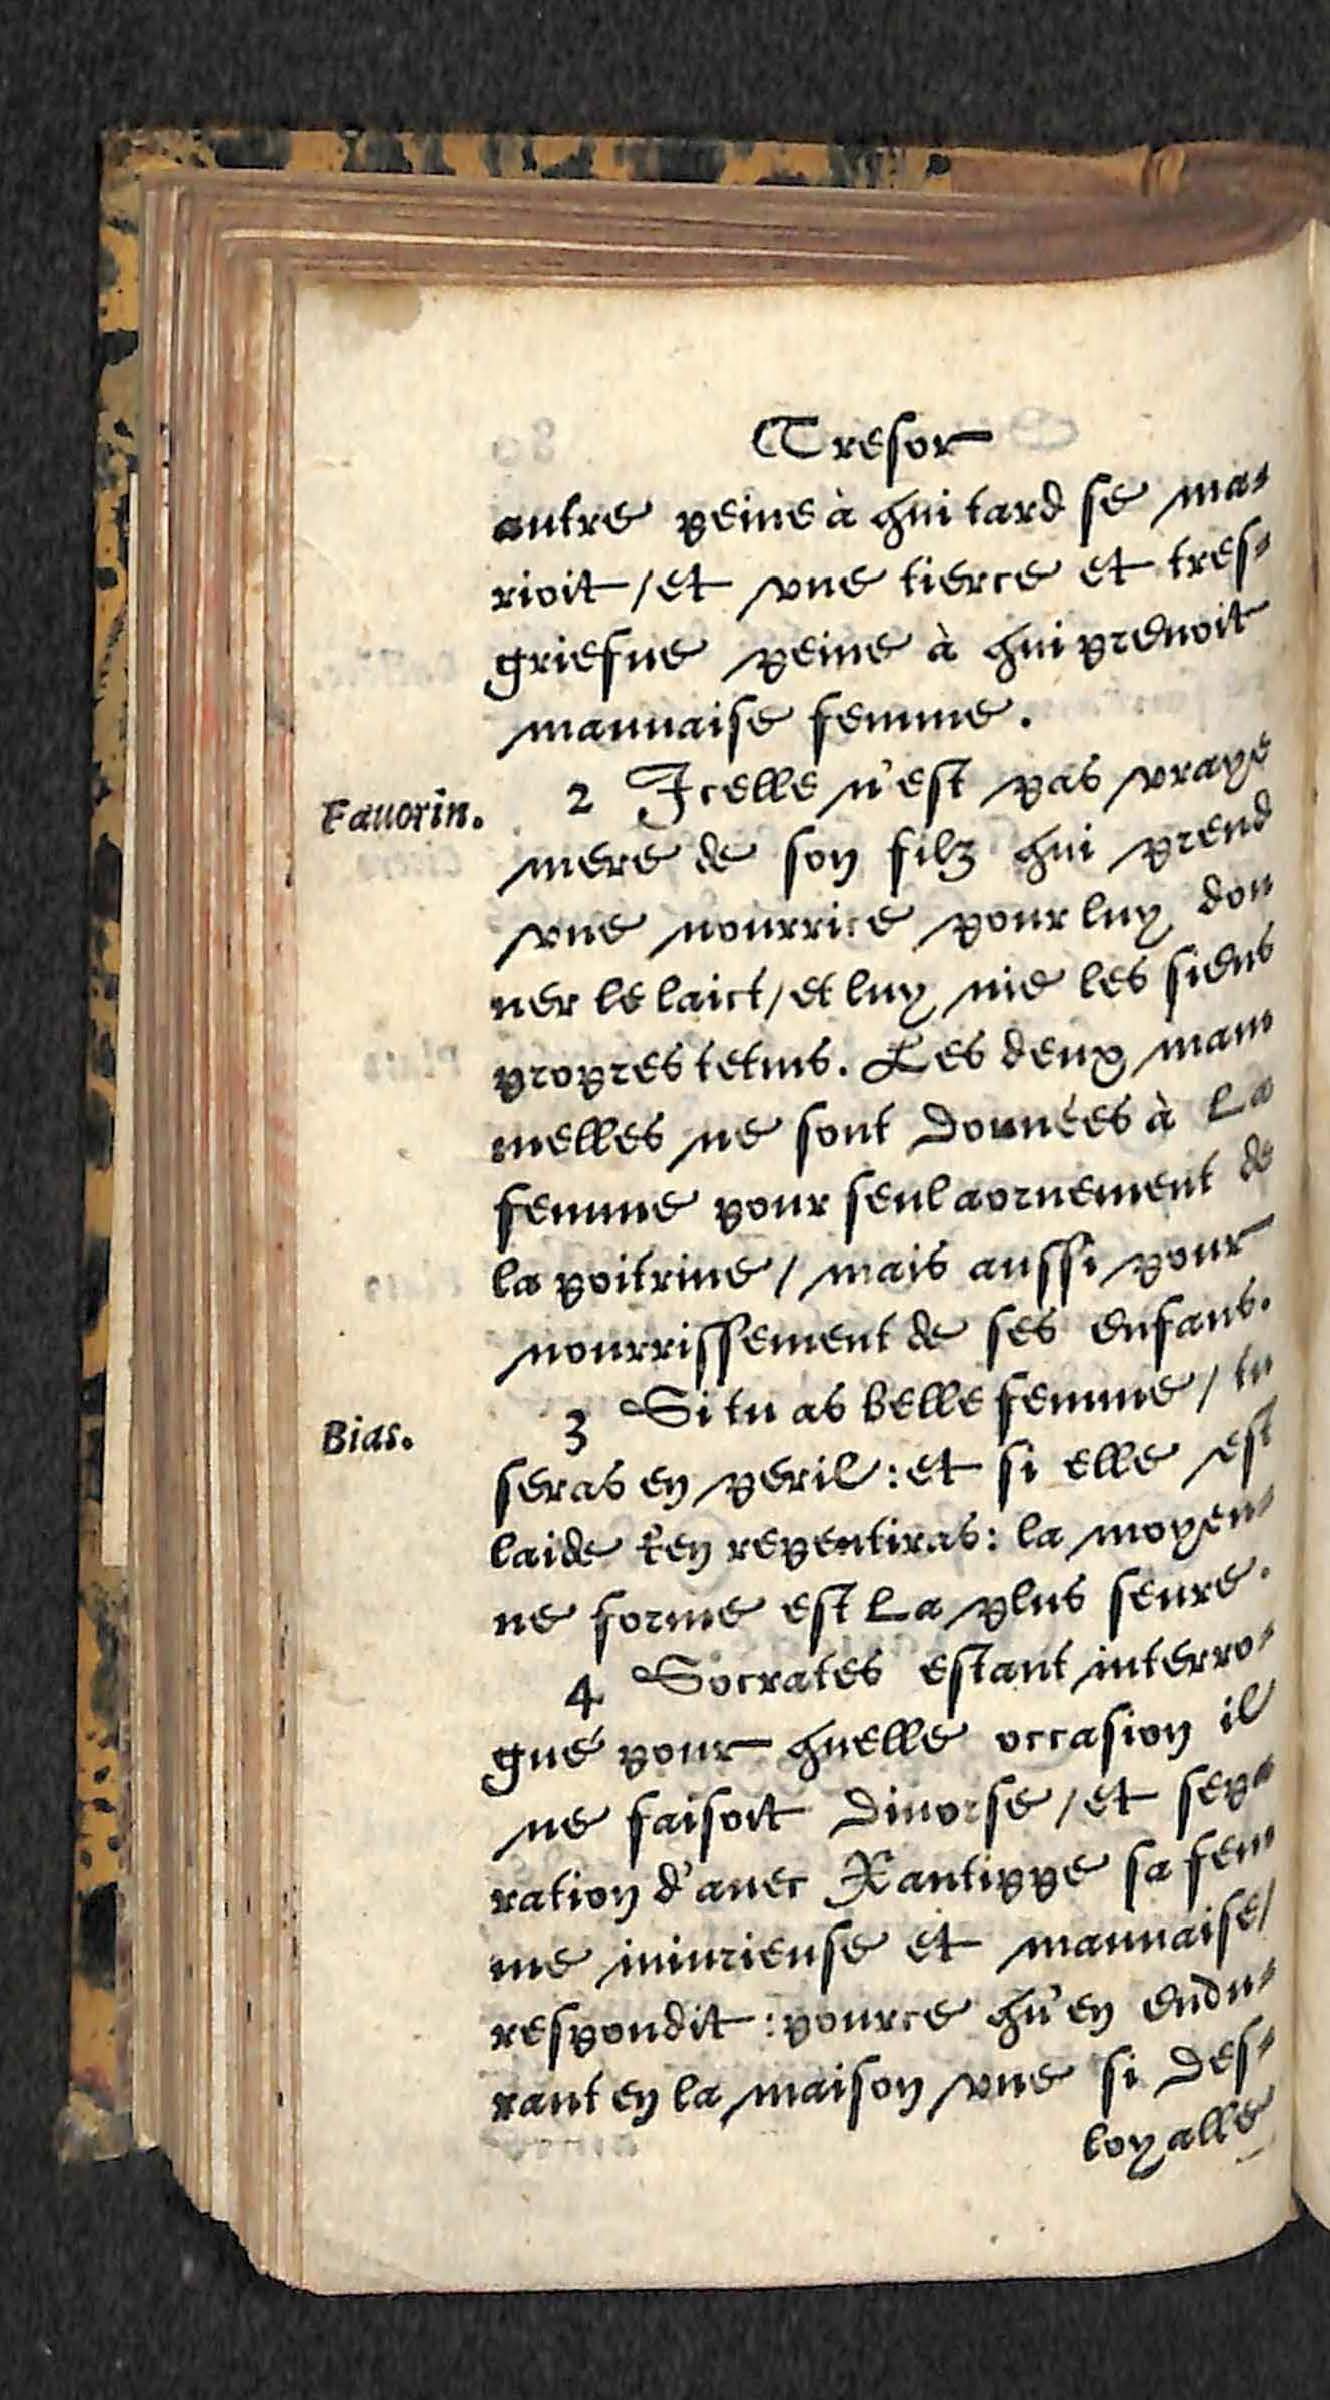 Tresor
autre peine à qui tard se ma-
rioit/et vne tierce et tres-
griefue peine à qui prenoit
mauuaise femme.
Fauorin.
2 Icelle n'est pas vraye
mere de son filz qui prend
vne nourrice pour luy don
ner le laict/et luy nie les siens
propres tetins. Les deux mam
melles ne sont données à la
femme pour seul aornement de
la poitrine/mais aussi pour
nourrissement de ses enfans.
Bias.
3 Si tu as belle femme/tu
seras en peril: et si elle est
laide t'en repentiras: la moyen-
ne forme est la plus seure.
4 Socrates estant interro-
gué pour quelle occasion il
ne faisoit diuorse/et sepa
ration d'auec Xantippe sa fem
me iniurieuse et mauuaise/
respondit: pource qu'en endu-
rant en la maison vne si des-
loyalle